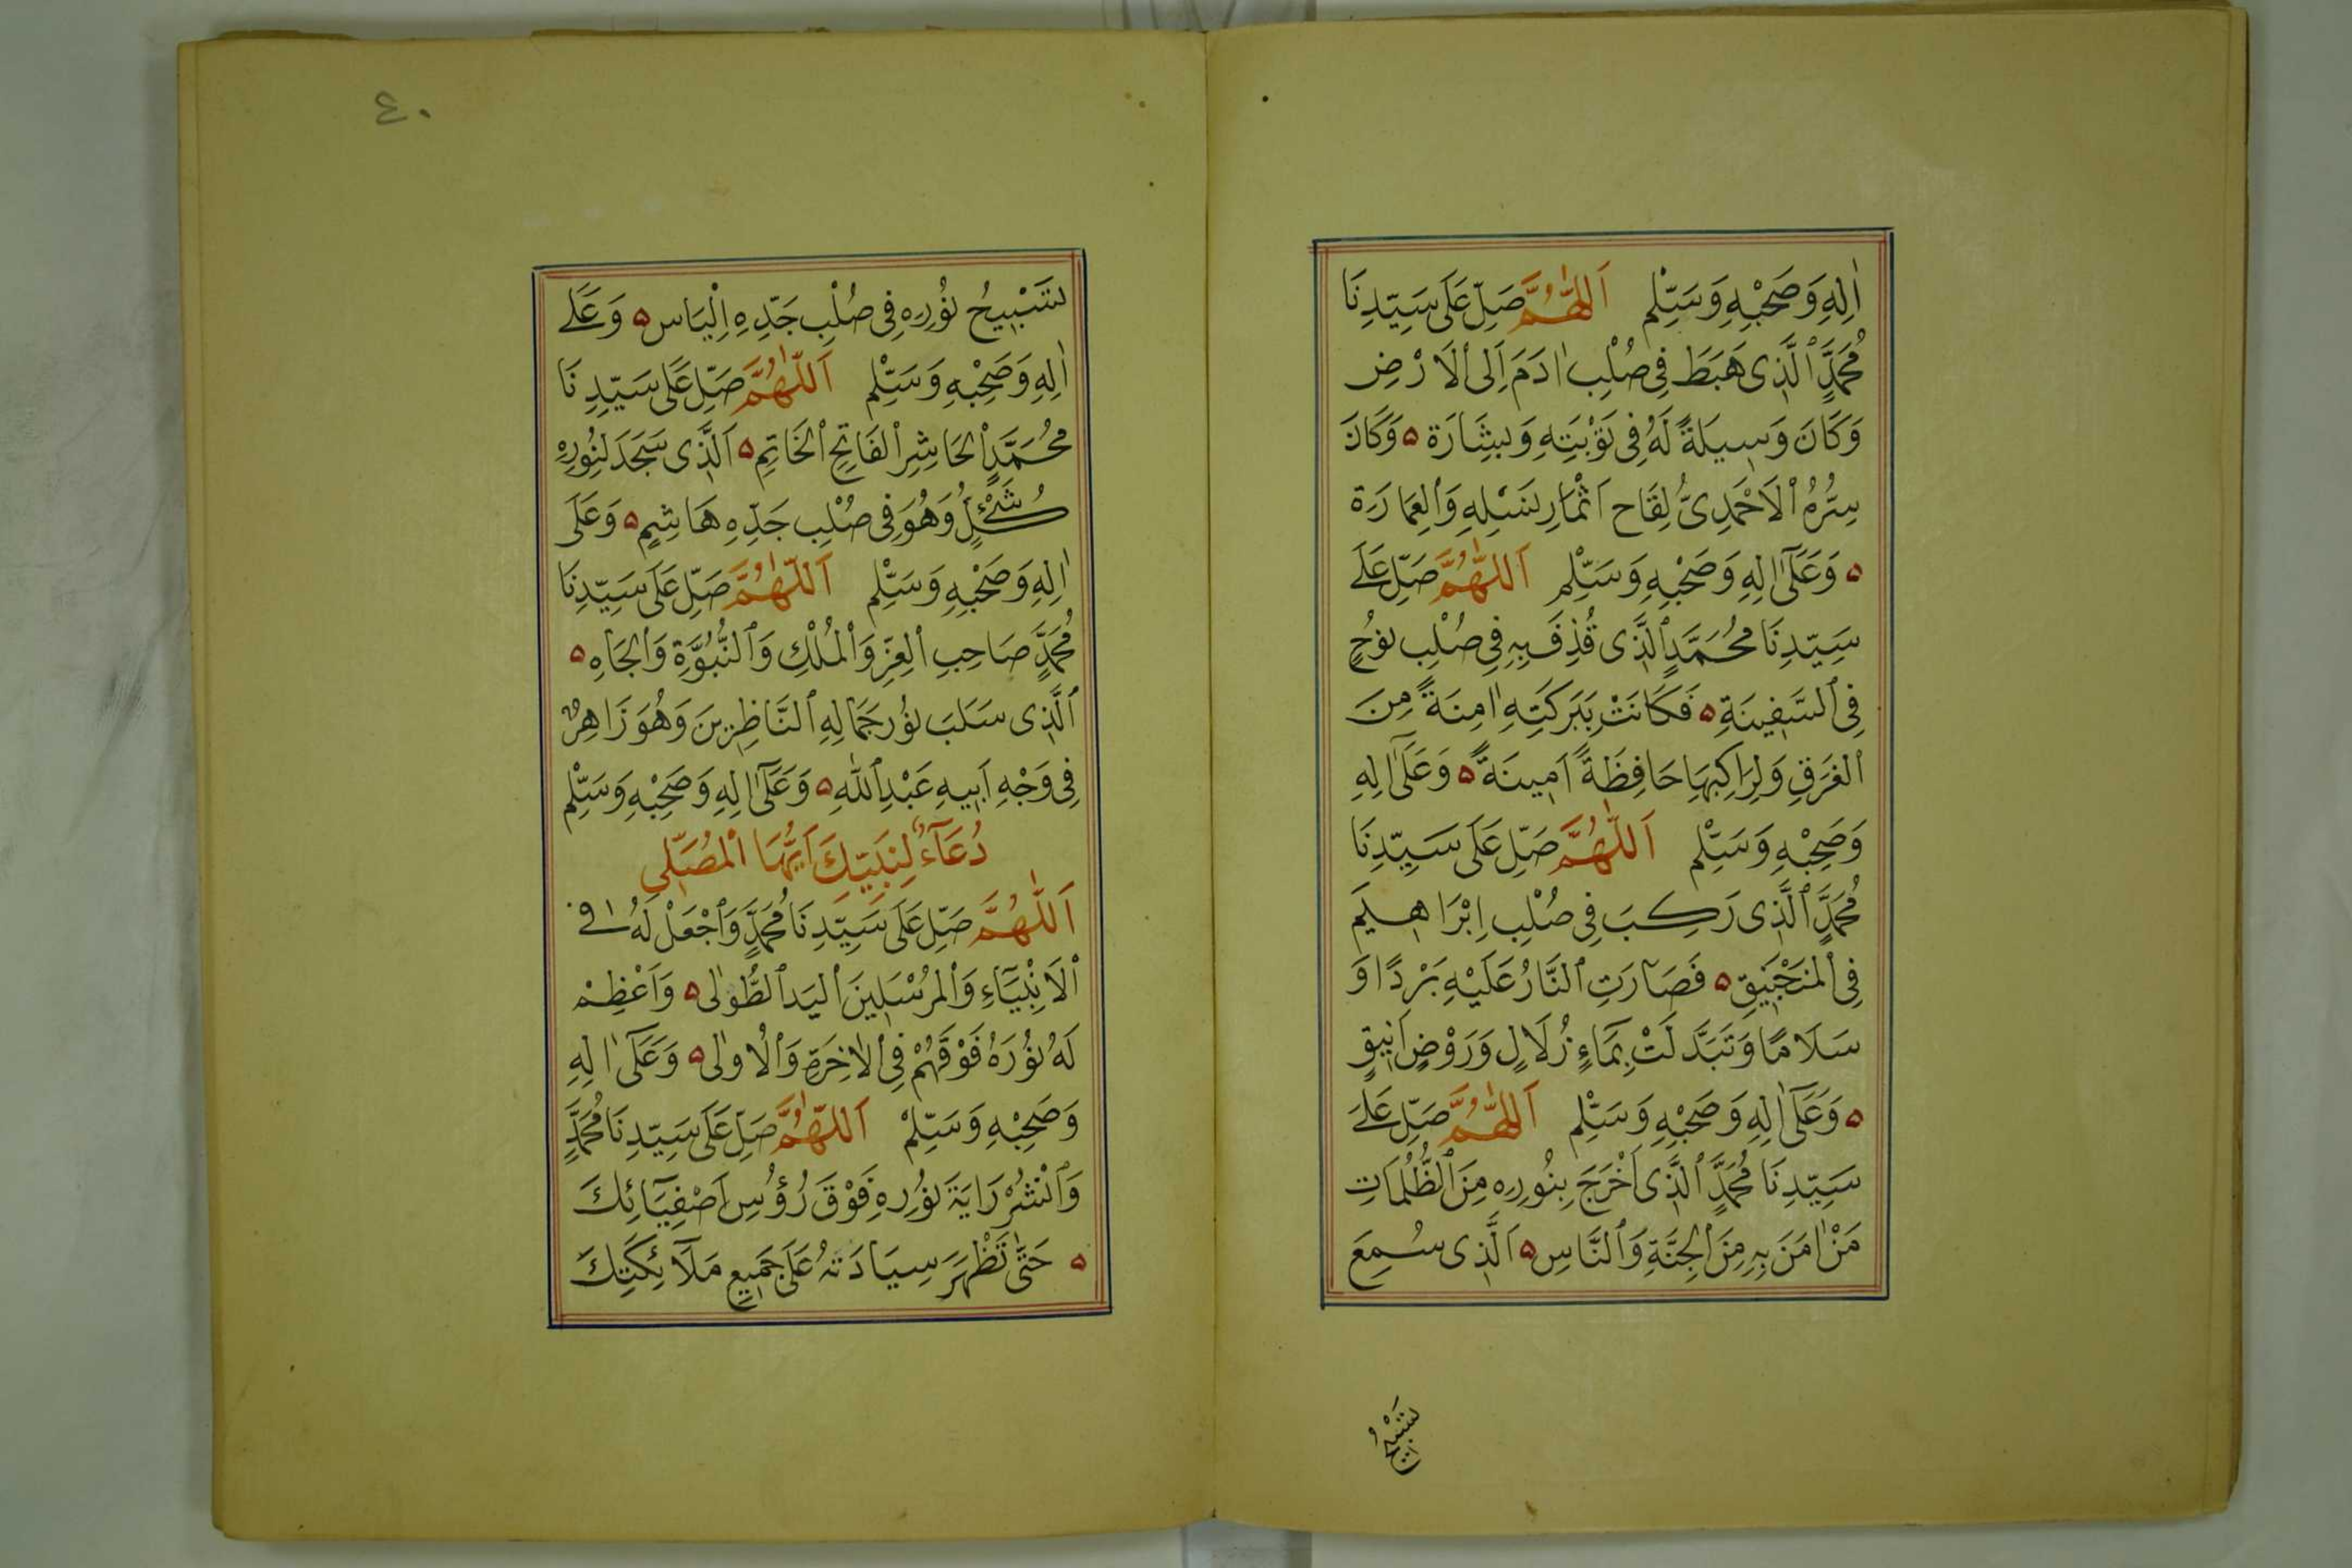 اٰلِهِ وَصَحْبِهِ وَسَلِّم اَللّٰهُمَّ صَلِّ عَلَى سَيِّدِنَا
مُحَمَّدٍ ٱلَّذِى هَبَطَ فِى صُلْبِ اٰدَمَ اِلَى ٱلْاَرْضِ
وَكَانَ وَسِيلَةً لَهُ فِى تَوْبَتِهِ وَبِشَارَة ۵ وَكَانَ
سِرُّهُ ٱلْاَحْمَدِىُّ لِقَاح اَثْمَارِ نَسْلِهِ وَٱلْعِمَارَة
۵ وَعَلَىٰٓ اٰلِهِ وَصَحْبِهِ وَسَلِّم اَللّٰهُمَّ صَلِّ عَلَى
سَيِّدِنَا مُحَمَّدٍ ٱلَّذِى قُذِفَ بِهِ فِى صُلْبِ نُوْحٍ
فِى ٱلسَّفِينَةِ ۵ فَكَانَتْ بِبَرَكَتِهِ اٰمِنَةً مِنَ
ٱلْغَرَقِ وَلِرَاكِبِهَا حَافِظَةً اَمِينَةً ۵ وَعَلَىٰٓ اٰلِهِ
وَصَحْبِهِ وَسَلِّم اَللّٰهُمَّ صَلِّ عَلَى سَيِّدِنَا
مُحَمَّدٍ ٱلَّذِى رَكِبَ فِى صُلْبِ اِبْرَاهِيمَ
فِى ٱلْمَنْجَنِيقِ ۵ فَصَارَتِ ٱلنَّارُ عَلَيْهِ بَرْدًا وَ
سَلَامًا وَتَبَدَّلَتْ بِمَاءٍ زُلَالٍ وَرَوْضٍ اَنِيقٍ
۵ وَعَلَىٰٓ اٰلِهِ وَصَحْبِهِ وَسَلِّم اَللّٰهُمَّ صَلِّ عَلَى
سَيِّدِنَا مُحَمَّدٍ ٱلَّذِى اَخْرَجَ بِنُورِهِ مِنَ ٱلظُّلُمَاتِ
مَنْ اٰمَنَ بِهِ مِنَ ٱلْجِنَّةِ وَٱلنَّاسِ ۵ اَلَّذِى سُمِعَ
تَسْبِيحُ
٤٠
تَسْبِيحُ نُوْرِهِ فِى صُلْبِ جَدِّهِ اِلْيَاس ۵ وَعَلَى
اٰلِهِ وَصَحْبِهِ وَسَلِّم اَللّٰهُمَّ صَلِّ عَلَى سَيِّدِنَا
مُحَمَّدٍ ٱلْحَاشِرِ ٱلْفَاتِحِ ٱلْخَاتِمِ ۵ اَلَّذِى سَجَدَ لِنُورِهِ
كُلُّ شَىْءٍ وَهُوَ فِى صُلْبِ جَدِّهِ هَاشِمٍ ۵ وَعَلَى
اٰلِهِ وَصَحْبِهِ وَسَلِّم اَللّٰهُمَّ صَلِّ عَلَى سَيِّدِنَا
مُحَمَّدٍ صَاحِبِ ٱلْعِزِّ وَٱلْمُلْكِ وَٱلنُّبُوَّةِ وَٱلْجَاهِ ۵
ٱلَّذِى سَلَبَ نُوْر جَمَالِهِ ٱلنَّاظِرِينَ وَهُوَ زَاهِرٌ
فِى وَجْهِ اَبِيهِ عَبْدِ ٱللّٰهِ ۵ وَعَلَىٰٓ اٰلِهِ وَصَحْبِهِ وَسَلِّم
دُعَآءٌ لِنَبِيِّكَ اَيُّهَا ٱلْمُصَلِّى
اَللّٰهُمَّ صَلِّ عَلَى سَيِّدِنَا مُحَمَّدٍ وَٱجْعَلْ لَهُ فِى
ٱلْاَنْبِيَآءِ وَٱلْمُرْسَلِينَ ٱلْيَدَ ٱلطُّوْلٰى ۵ وَاَعْظِمْ
لَهُ نُوْرَهُ فَوْقَهُمْ فِى ٱلْاٰخِرَةِ وَٱلْاُولٰى ۵ وَعَلَىٰٓ اٰلِهِ
وَصَحْبِهِ وَسَلِّمْ اَللّٰهُمَّ صَلِّ عَلَى سَيِّدِنَا مُحَمَّدٍ
وَٱنْشُرْ رَايَةَ نُوْرِهِ فَوْقَ رُؤُسِ اَصْفِيَآئِكَ
۵ حَتَّى تَظْهَرَ سِيَادَتُهُ عَلَى جَمِيعِ مَلَآئِكَتِكَ